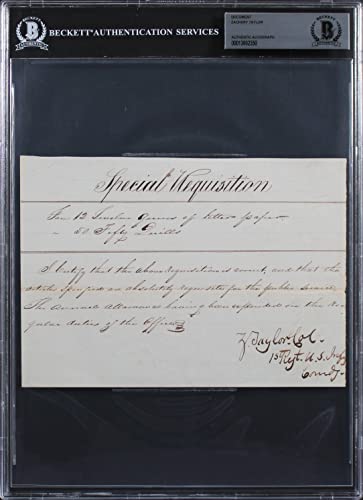 BECKETT AUTHENTICATION SERVICES
DOCUMENT
ZACHARY TAYLOR
AUTHENTIC AUTOGRAPH
BECKETT
BECKETT
Special Requisition
For 12 Twelve Quires of letter paper
" 50 Fifty Quills
I Certify that the above Requisition is correct, and that the
articles specified are absolutely requisite for the public service
The Annual Allowance having been expended in the Re
gular duties of the Office
Z. Taylor Col.
1st Regt. U.S. Infy
Comdg.